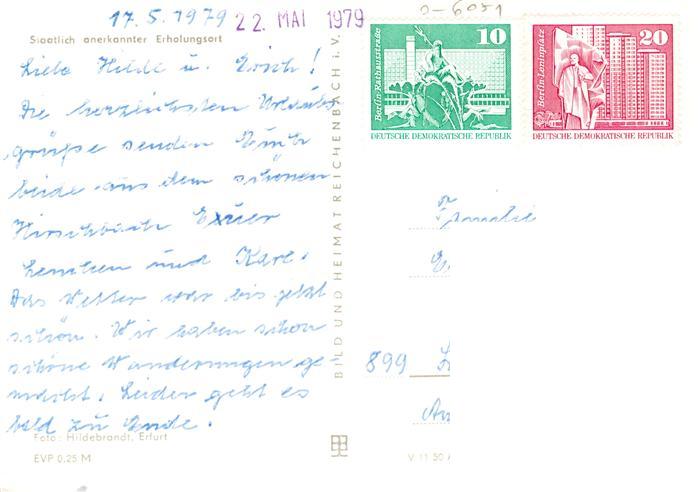 17.5.1979 22. MAI 1979
Staatlich anerkannter Erholungsort
Liebe Hilde u. Erich!
Die herzlichsten Urlaubs-
grüße senden Euch
beide aus dem schönen
Hirschbach Euer
Lenchen und Karl.
Das Wetter war bis jetzt
schön. Wir haben schon
schöne Wanderungen ge-
macht. Leider geht es
bald zu Ende.
Foto: Hildebrandt, Erfurt
EVP 0,25 M
BILD UND HEIMAT REICHENBACH i. V.
V 11 50
Berlin-Rathausstraße
10
DEUTSCHE DEMOKRATISCHE REPUBLIK
Berlin-Leninplatz
20
DEUTSCHE DEMOKRATISCHE REPUBLIK
Familie
899